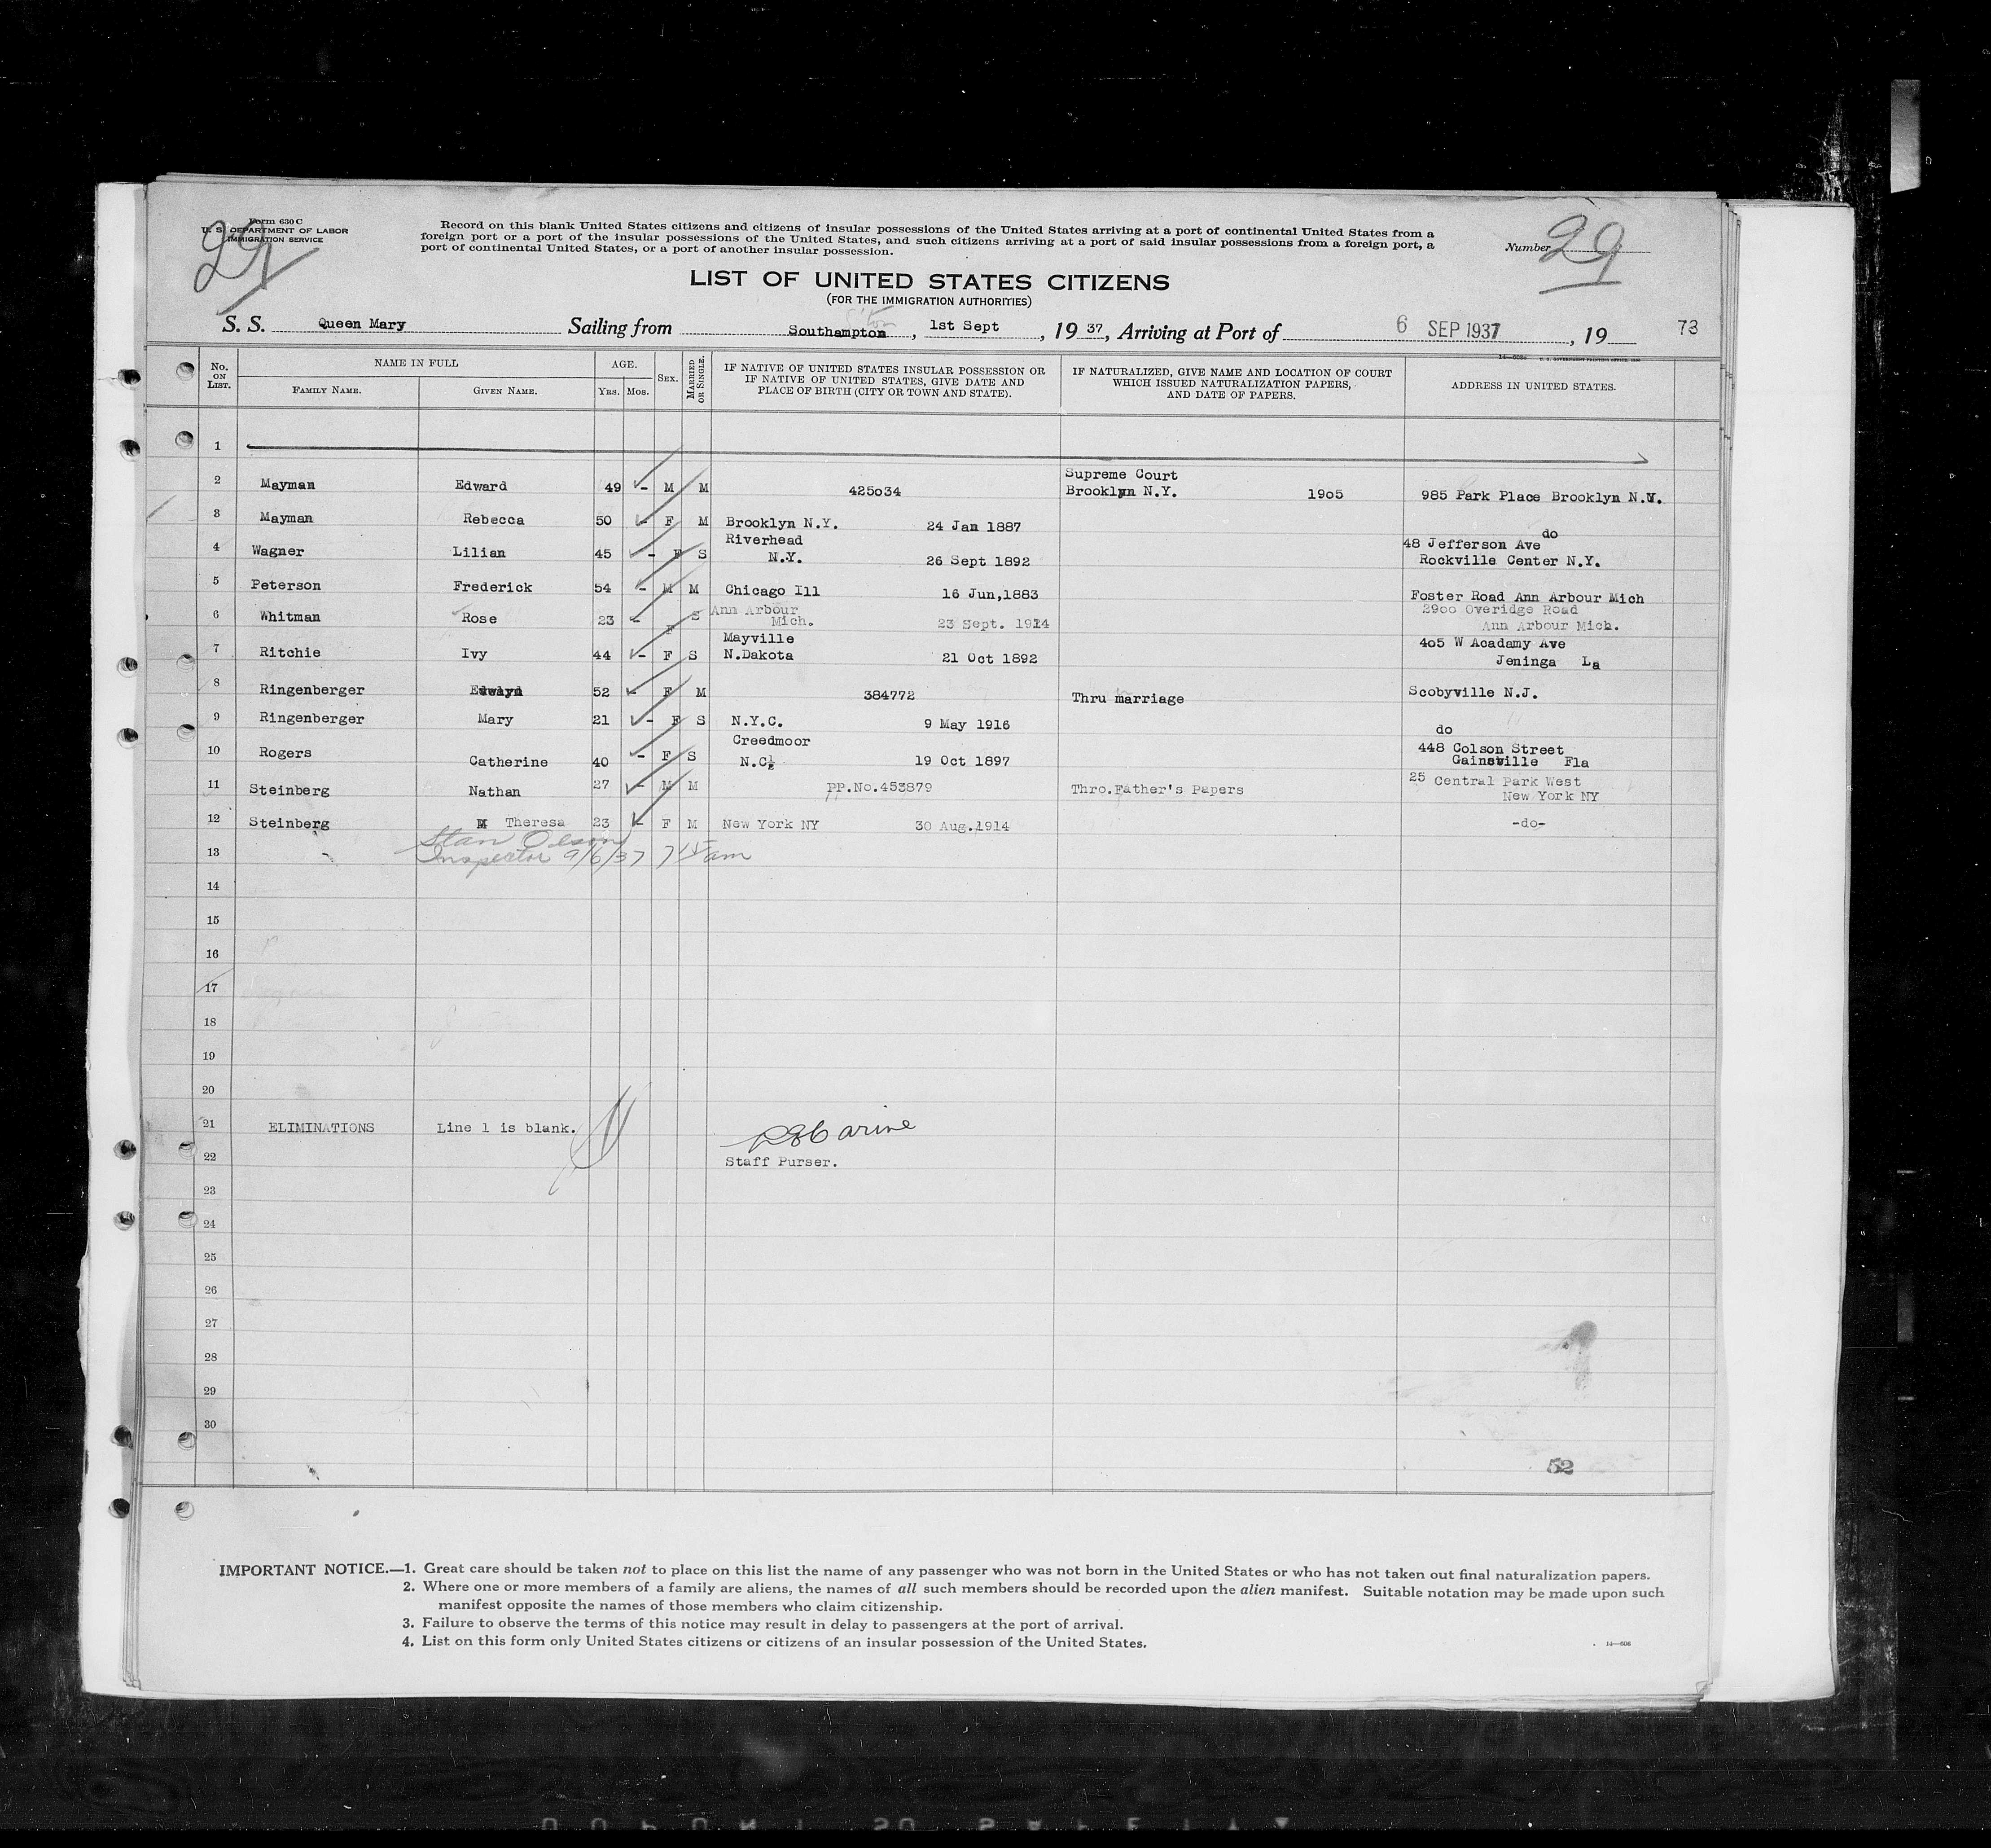 Form 630 C
U. S. DEPARTMENT OF LABOR
IMMIGRATION SERVICE
29
Record on this blank United States citizens and citizens of insular possessions of the United States arriving at a port of continental United States from a
foreign port or a port of the insular possessions of the United States, and such citizens arriving at a port of said insular possessions from a foreign port, a
port of continental United States, or a port of another insular possession.
Number 29
LIST OF UNITED STATES CITIZENS
(FOR THE IMMIGRATION AUTHORITIES)
S. S. Queen Mary Sailing from Southampton, 1st Sept, 19 37, Arriving at Port of 6 SEP 1937, 19 73
No. ON LIST. NAME IN FULL FAMILY NAME. GIVEN NAME. AGE. YRS. MOS. SEX. MARRIED OR SINGLE. IF NATIVE OF UNITED STATES INSULAR POSSESSION OR IF NATIVE OF UNITED STATES, GIVE DATE AND PLACE OF BIRTH (CITY OR TOWN AND STATE). IF NATURALIZED, GIVE NAME AND LOCATION OF COURT WHICH ISSUED NATURALIZATION PAPERS, AND DATE OF PAPERS. ADDRESS IN UNITED STATES.
1
2 Mayman Edward 49 - M M 425034 Supreme Court Brooklyn N.Y. 1905 985 Park Place Brooklyn N.Y.
3 Mayman Rebecca 50 - F M Brooklyn N.Y. 24 Jan 1887 do
4 Wagner Lilian 45 - F S Riverhead N.Y. 26 Sept 1892 48 Jefferson Ave Rockville Center N.Y.
5 Peterson Frederick 54 - M M Chicago Ill 16 Jun,1883 Foster Road Ann Arbour Mich
6 Whitman Rose 23 - F S Ann Arbour Mich. 23 Sept. 1914 2900 Overidge Road Ann Arbour Mich.
7 Ritchie Ivy 44 - F S Mayville N.Dakota 21 Oct 1892 405 W Acadamy Ave Jeninga La
8 Ringenberger 52 - F M 384772 Thru marriage Scobyville N.J.
9 Ringenberger Mary 21 - F S N.Y.C. 9 May 1916 do
10 Rogers Catherine 40 - F S Creedmoor N.C. 19 Oct 1897 448 Colson Street Gainsville Fla
11 Steinberg Nathan 27 - M M PP.No.453879 Thro.Father's Papers 25 Central Park West New York NY
12 Steinberg M Theresa 23 - F M New York NY 30 Aug.1914 -do-
Stan Olson
13 Inspector 9/6/37 7 15 am
14
15
16
17
18
19
20
21 ELIMINATIONS Line 1 is blank.
22 Staff Purser.
23
24
25
26
27
28
29
30
52
IMPORTANT NOTICE.—1. Great care should be taken not to place on this list the name of any passenger who was not born in the United States or who has not taken out final naturalization papers.
2. Where one or more members of a family are aliens, the names of all such members should be recorded upon the alien manifest. Suitable notation may be made upon such
manifest opposite the names of those members who claim citizenship.
3. Failure to observe the terms of this notice may result in delay to passengers at the port of arrival.
4. List on this form only United States citizens or citizens of an insular possession of the United States.
14—606